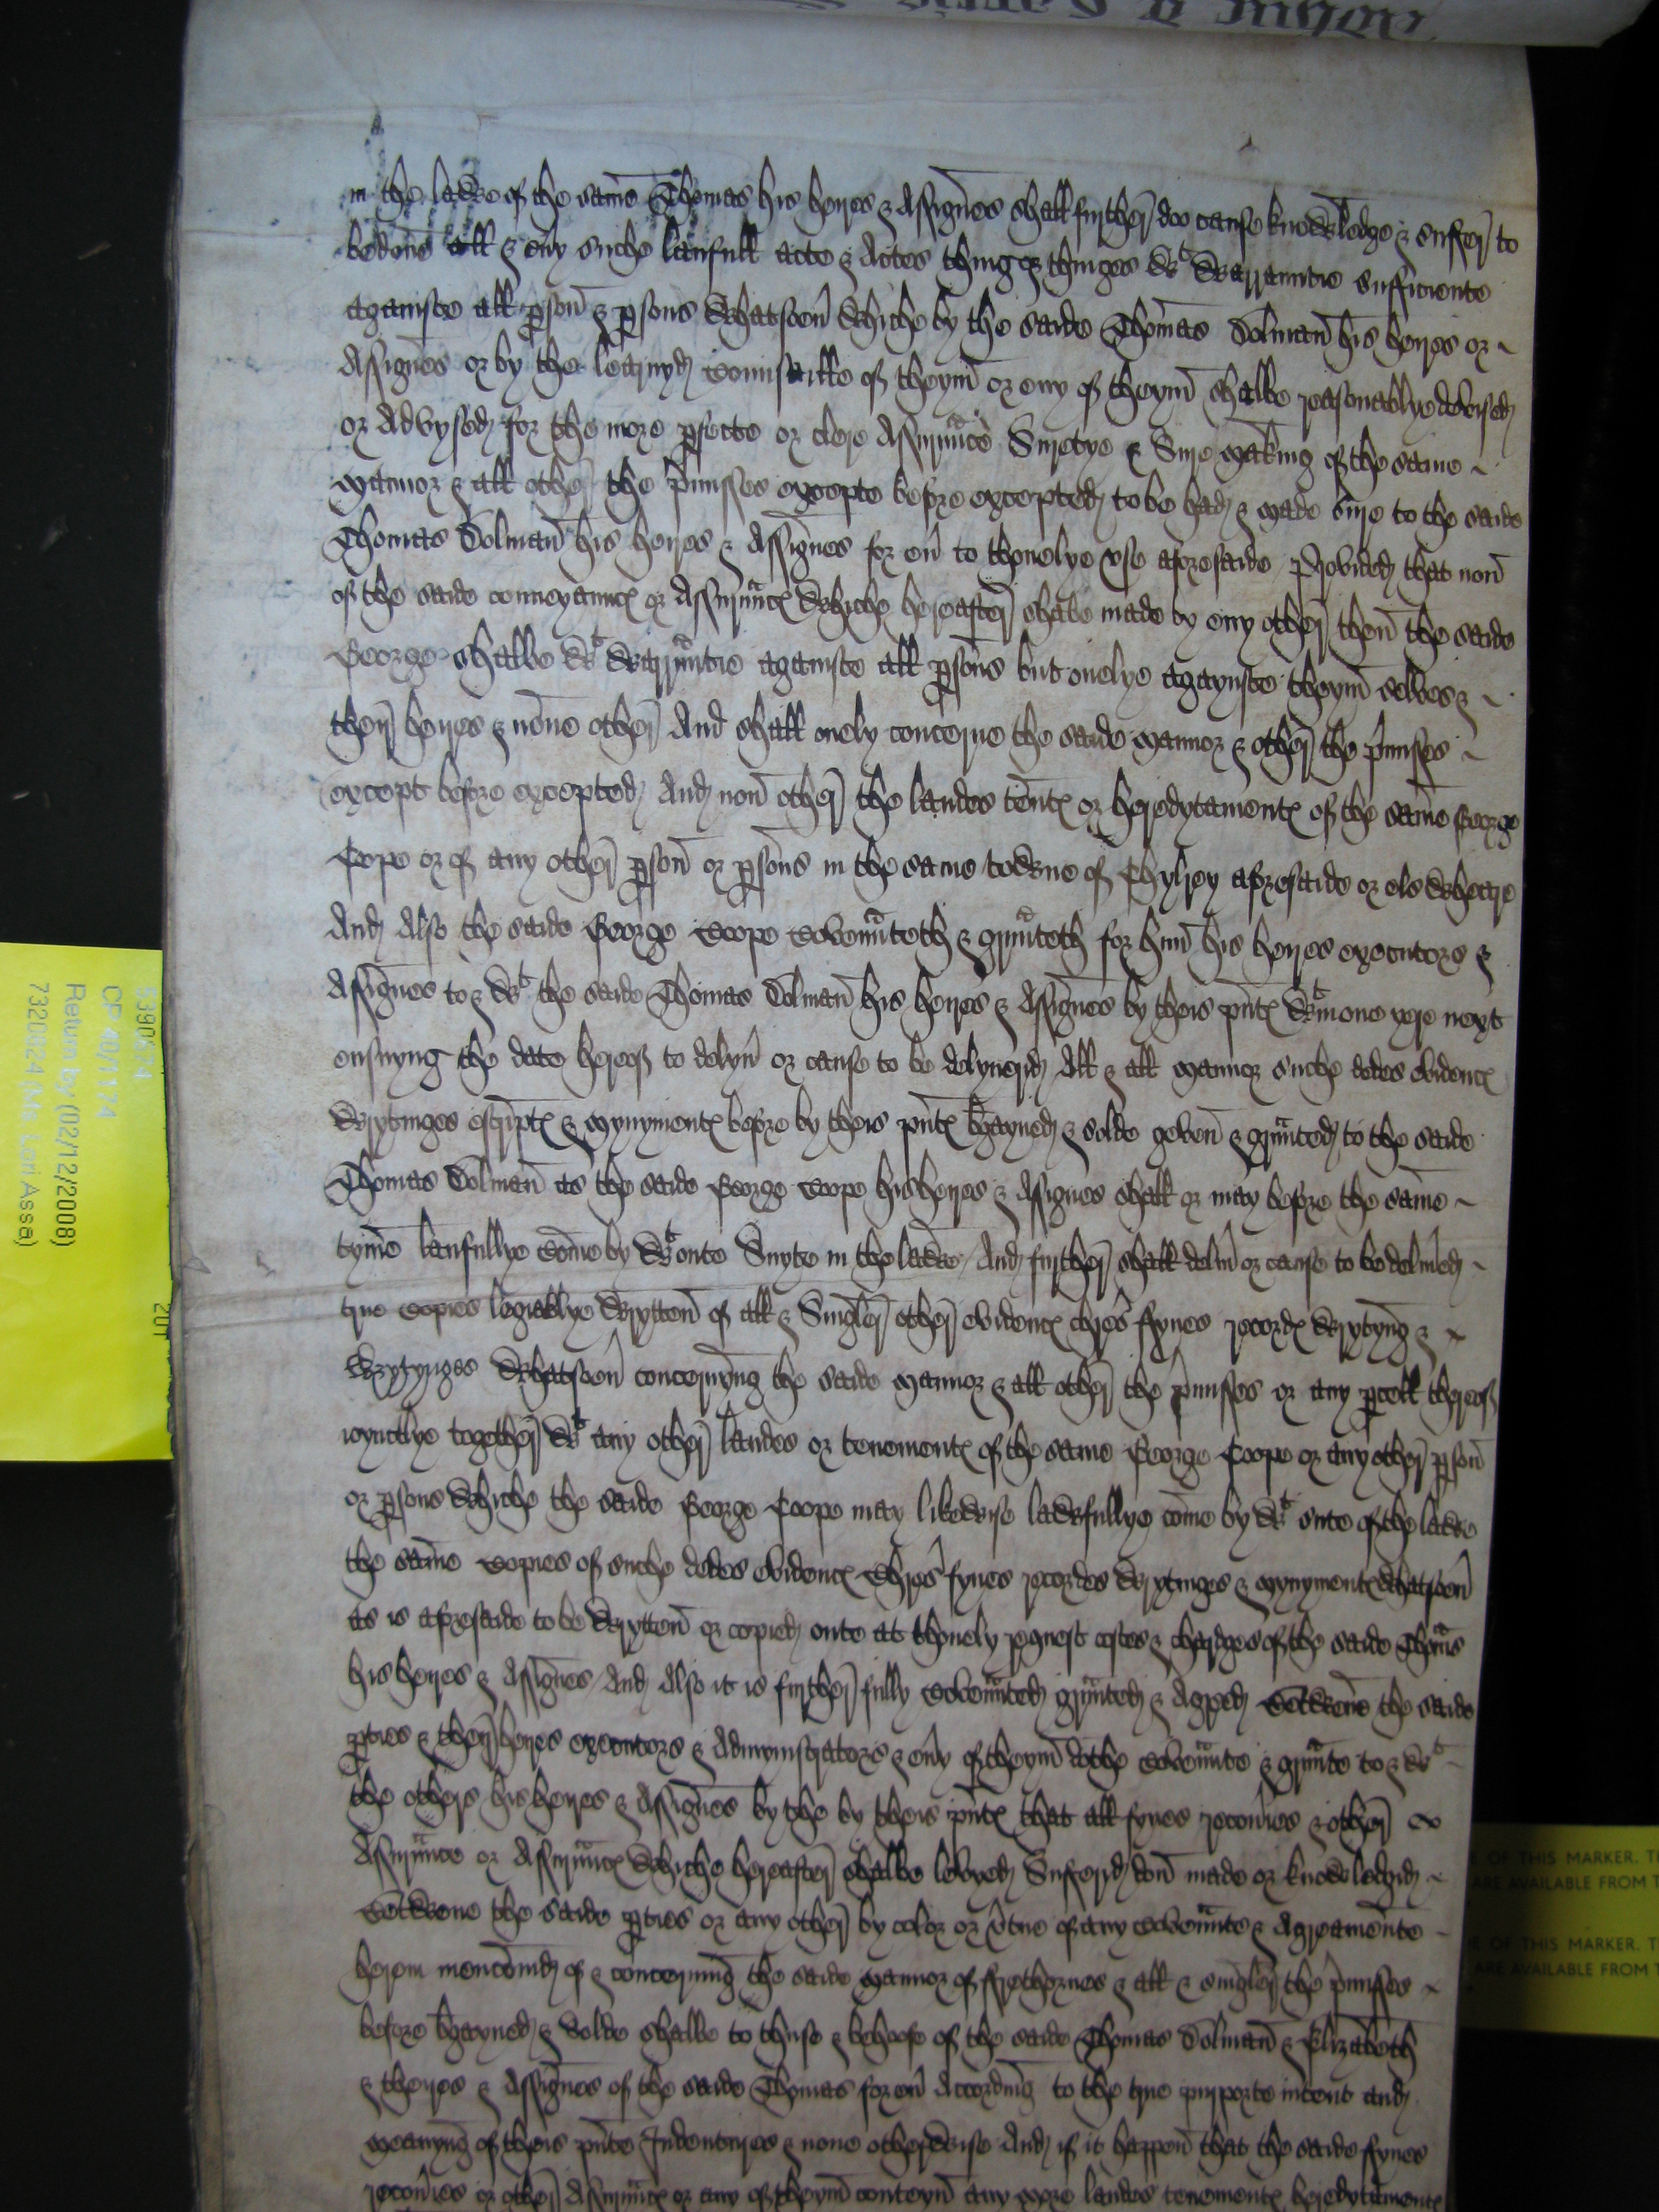 in the lawe of the same Thomas his heyres & Assignes shall further doo cause knowledge & suffer to
be done all & euy suche laufull acte & Actes thing & thinges wt Warrauntie sufficiente
againste all pson & psons Whatsoeu Whiche by the saide Thomas Dolman his heyres or ~
Assignes or by the learnyd Counsaille of theym or eny of theym shalbe reasonablye devised
or Advysed for the more pfecte or clere Assurance Suretye & Sure making of the same ~
mannor & all other the pmisses excepte before excepted to be had & made sure to the saide
Thomas Dolman his heyres & Assignes for eu to thonelye use aforesaide Provided that non
of the saide conueyaunces or Assurances Whiche hereafter shalbe made by eny other then the saide
George shalbe wt Warrantie againste all psons but onelye agaynste theym selves & ~
their heyres & none other And shall onely concerne the saide mannor & other the pmisses ~
except before excepted And non other the landes tentes or heredytamentes of the same George
Cope or of any other pson or psons in the same towne of Chylrey aforesaide or els Wheare
And Also the saide George Coope Covenanteth & granteth for him his heyres executors &
Assignes to & wt the saide Thomas Dolman his heyres & Assignes by theis pntes wtin one yere next
ensuyng the date hereof to delyu or cause to be delyueryd All & all mannor suche dedes evidences
Wrytinges escriptes & mynymentes before by theis pntes bargayned & solde geven & graunted to the saide
Thomas Dolman as the saide George Coope his heyres & Assignes shall or may before the same ~
tyme laufullye Come by wtoute Suyte in the lawe And further shall deliu or cause to be deliued ~
true Copies legiablye Wrytten of all & Singler other evidences chres ffynes recordes Wrytyng & ~
Wrytynges Whatsoeu concernyng the saide mannor & all other the pmisses or any pcell thereof
ioyntlye together wt any other landes or tenementes of the same George Coope or any other pson
or psons Whiche the saide George Coope may likewise lawfullye come by wt sute of the lawe
the same Copies of suche dedes evidences Chres fynes recordes Wrytinges & mynymentes Whatsoeu
as is aforesaide to be Wrytten or copied oute at thonely request costes & chardges of the saide Thomas
his heyres & Assignes And Also it is further fully Covenanted granted & Agreed Betwene the saide
pties & their heyres executors & Admynistrators & euy of theym dothe Covenante & grante to & wt ~
the others his heyres & Assignes by the by theis pntes that all fynes recoueries & other ~
Assurance or Assurances Whiche hereafter shalbe levyed Sufferyd don made or knowledgid ~
Betwene the saide pties or any other by color or vtue of any Covenantes & Agreamente ~
herein mencionid of & concerning the saide mannor of ffrethornes & all & singler the pmisses ~
before bargayned & Solde shalbe to thuse & behoofe of the saide Thomas Dolman & Elizabeth
& theyres & Assignes of the saide Thomas for eu According to the true purporte intent and
meanyng of theis pnte Indentures & none otherwise And if it happen that the saide ffynes
recoueries or other Assurances or any of theym conteyn any more landes tenementes heredytamentes
5390674
CP 40/1174
Return by (02/12/2008)
7320824 (Ms Lori Assa)
E OF THIS MARKER. T
ARE AVAILABLE FROM T
E OF THIS MARKER. T
ARE AVAILABLE FROM T